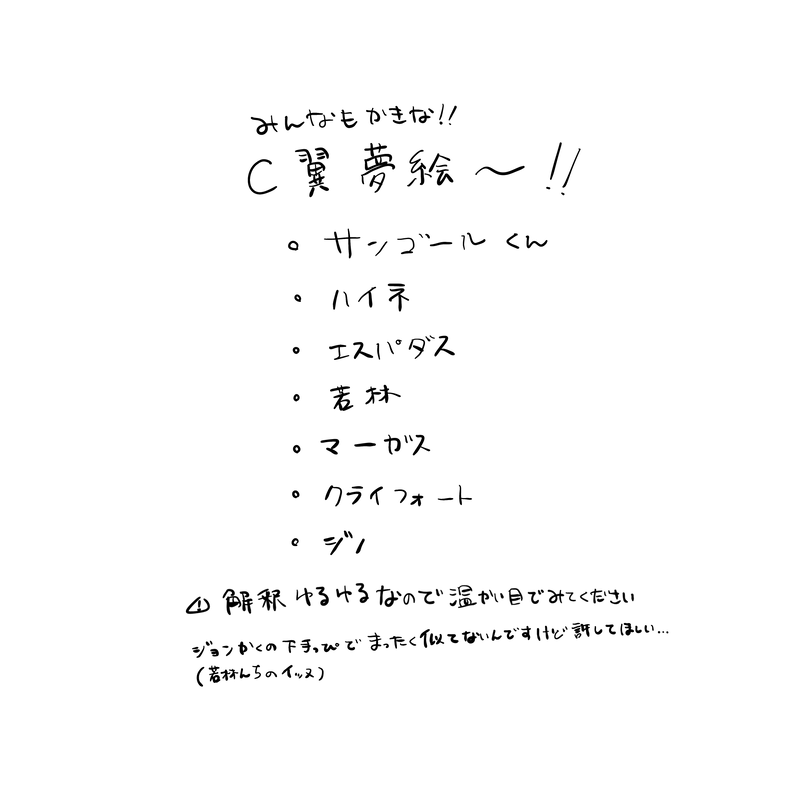 みんなもかきな!!
C翼夢絵〜!!
• サンゴールくん
• ハイネ
• エスパダス
• 若林
• マーガス
• クライフォート
• ジノ
⚠ 解釈ゆるゆるなので温かい目でみてください
ジョンかくの下手っぴでまったく似てないんですけど許してほしい…
(若林んちのイッヌ)